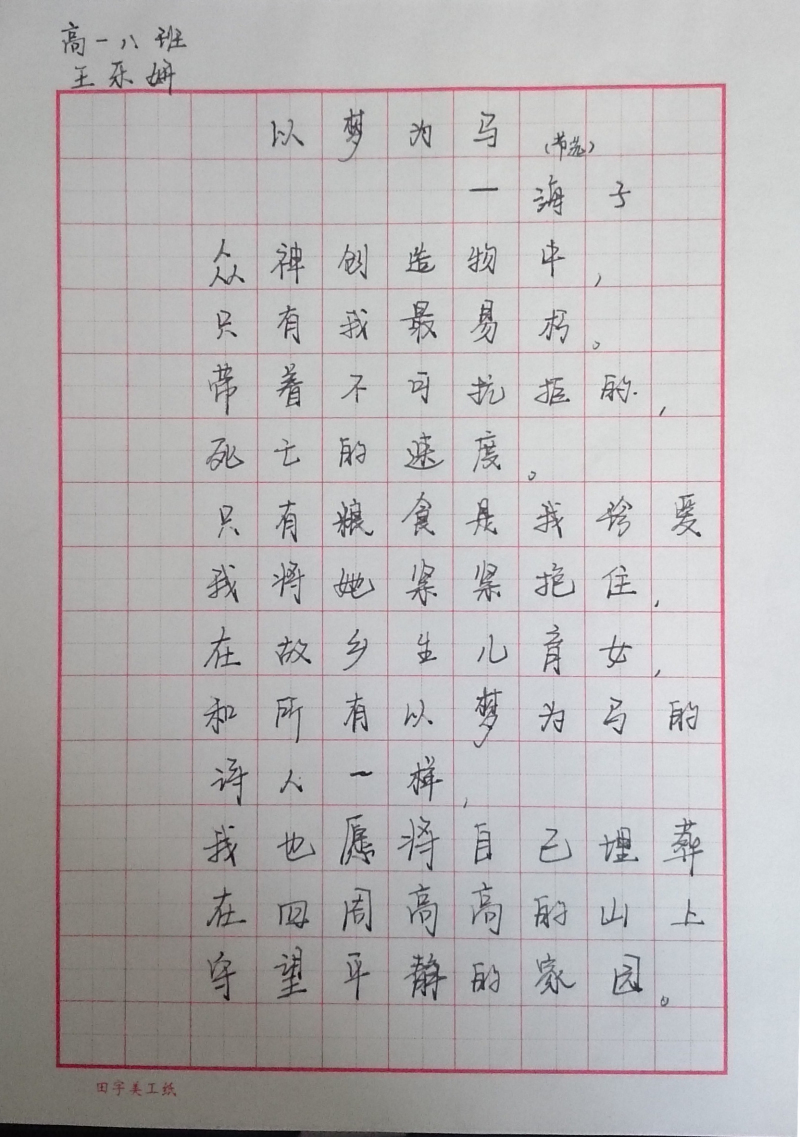 高一八班
王乐妍
以梦为马（节选）
一海子
众神创造物中，
只有我最易朽。
带着不可抗拒的，
死亡的速度。
只有粮食是我珍爱
我将她紧紧抱住，
在故乡生儿育女，
和所有以梦为马的
诗人一样，
我也愿将自己埋葬
在四周高高的山上
守望平静的家园。
田字美工纸